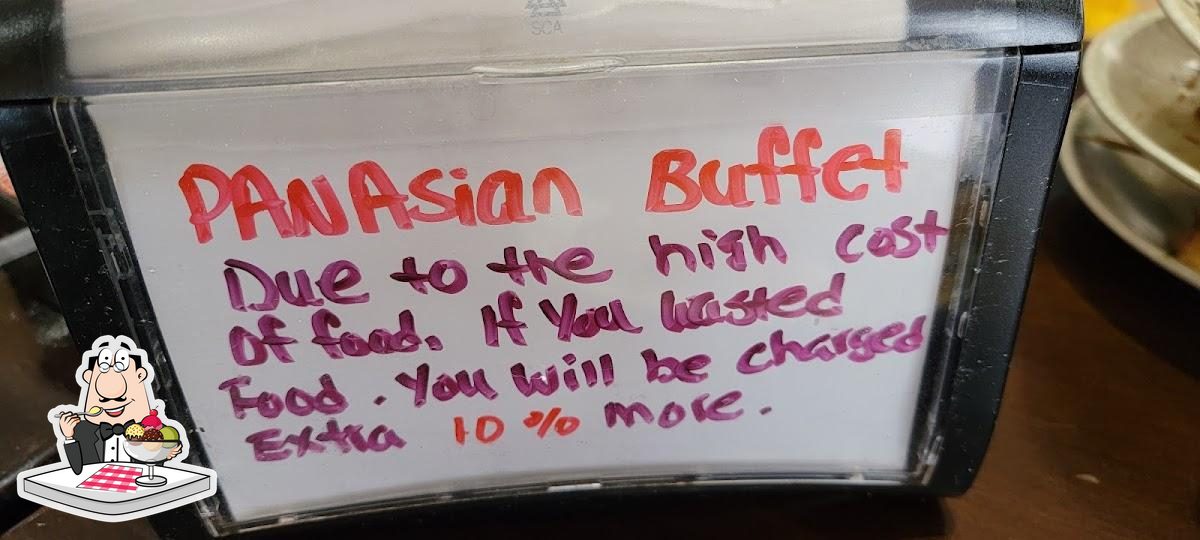 SCA
PANAsian Buffet
Due to the high cost
Of food. If You wasted
Food. You will be charged
Extra 10% more.